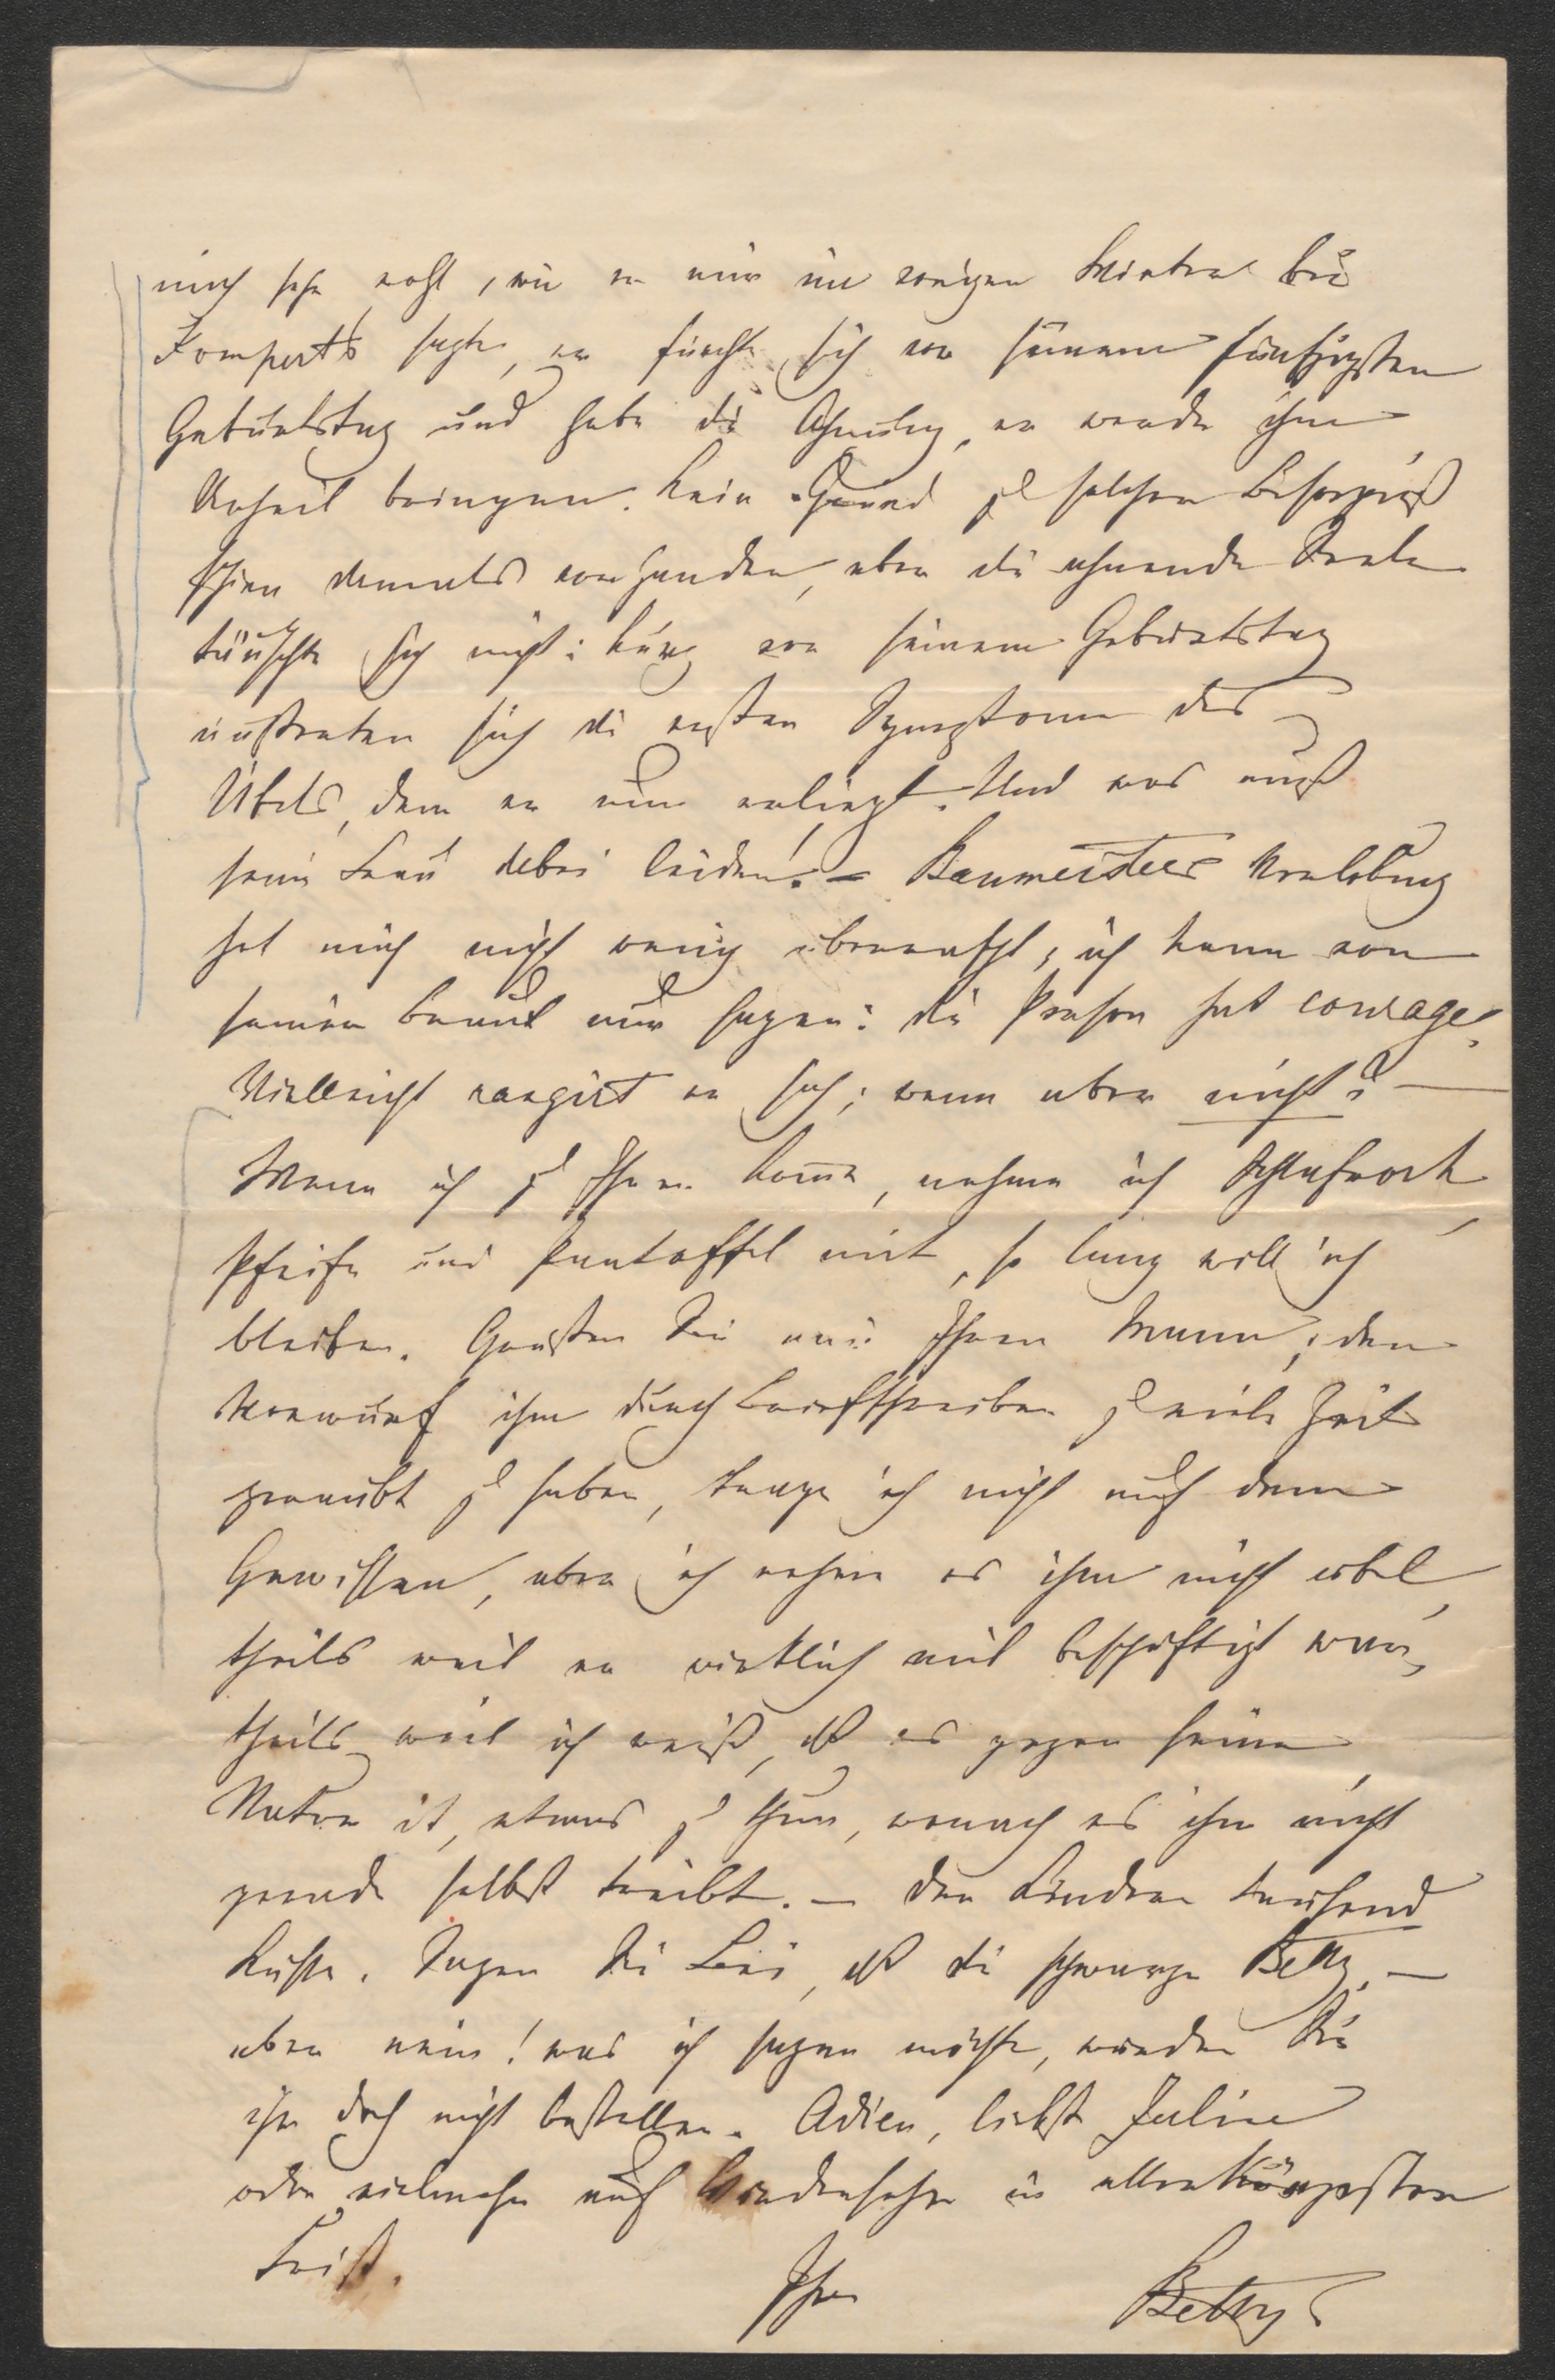 mich sehr wohl, wie er mir im vorigen Winter bei
Kompert's sagte, er fürchte sich vor seinem fünfzigsten
Geburtstag und habe die Ahnung, er werde ihm
Unheil bringen. Kein Grund zu solcher Besorgniß
schien damals vorhanden, aber die ahnende Seele
täuschte sich nicht: kurz vor seinem Geburtstag
äußerten sich die ersten Symptome des
Übels, dem er nun erliegt. Und was muß
seine Frau dabei leiden! – Baumeisters Verlobung
hat mich nicht wenig überrascht; ich kann von
seiner Braut nur sagen: die Person hat courage!
Vielleicht rangirt er sich; wenn aber nicht? —
Wenn ich zu Ihnen kome, nehme ich Schlafrock,
Pfeife und Pantoffel mit, so lang will ich
bleiben. Grüßen Sie mir Ihren Mann; den
Vorwurf ihm durch Briefschreiben zu viele Zeit
geraubt zu haben, trage ich nicht auf dem
Gewissen, aber ich nehme es ihm nicht übel,
theils weil er wirklich viel beschäftigt war,
theils weil ich weiß, dß es gegen seine
Natur ist, etwas zu thun, wonach es ihn nicht
gerade selbst treibt. — Den Kindern tausend
Küsse. Sagen Sie dß die schwarze Betty, —
aber nein! was ich sagen möchte, würden Sie
ihr doch nicht bestellen. Adieu, liebste Julie
oder vielmehr auf Wiedersehn in allerkürzester
Frist.
Ihre Betty